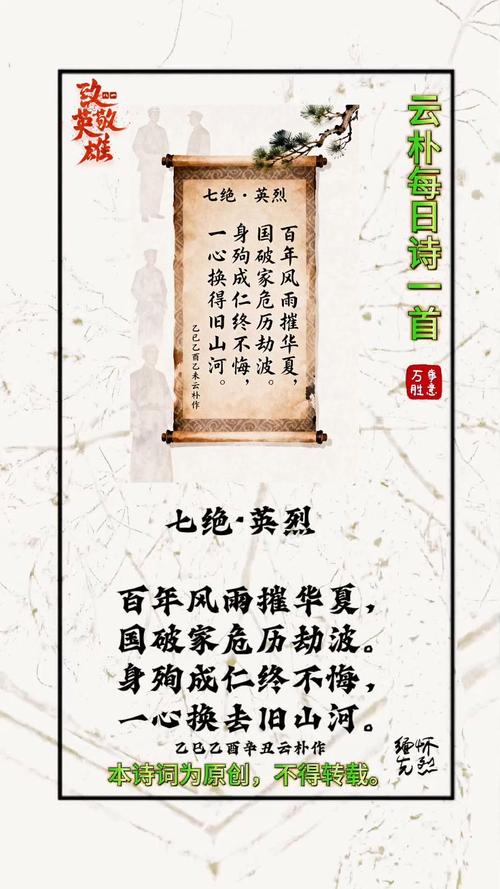 致敬英雄
云朴每日诗一首
万事胜意
七绝·英烈
百年风雨摧华夏，
国破家危历劫波。
身殉成仁终不悔，
一心换得旧山河。
乙巳乙酉乙未云朴作
七绝·英烈
百年风雨摧华夏，
国破家危历劫波。
身殉成仁终不悔，
一心换去旧山河。
乙巳乙酉辛丑云朴作
缅怀先烈
本诗词为原创，不得转载。